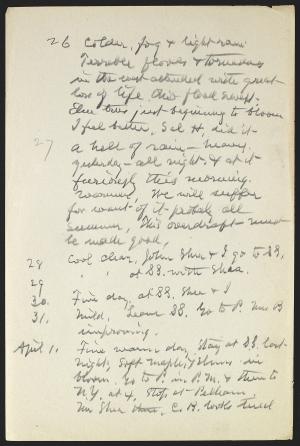 26 Colder, fog & light rain
Terrible floods & tornadoes
in the west attended with great
loss of life. Ohio flood swept.
Elm trees just beginning to bloom
I feel better, Sal H. did it.
27 a hell of rain – heavy
yesterday – all night, & at it
furiously this morning.
Warmer, We will suffer
for want of it probably all
summer, This overdraft must
be made good,
28 Cool clear, John Shea & I go to SS,
29 " " at SS. with Shea.
30. Fine day, at SS. Shea & I
31. Mild, Leave SS. Go to P. Mrs B
improving.
April 1. Fine warm day, Stay at SS last
night, Soft maples & elms in
bloom. Go to P. in P.M. & then to
N.Y. at 4, stop at Pelham,
Mr Shea C. B. looks tired